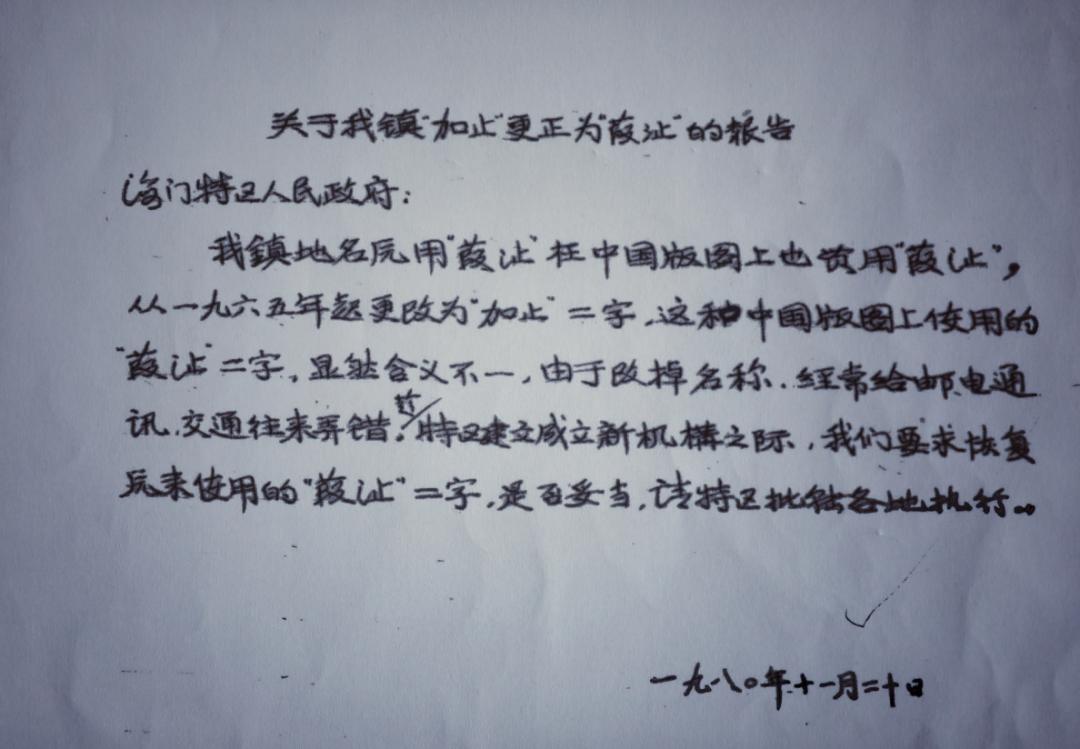 关于我镇"加止"更正为"葭沚"的报告
海门特区人民政府:
我鎮地名原用"葭沚"在中国版图上也贯用"葭沚",
从一九六五年起更改为"加止"二字,这和中国版图上使用的
"葭沚"二字,显然含义不一,由于改掉名称,经常给邮电通
讯、交通往来弄错。特区建立成立新机構之际,我们要求恢复
原来使用的"葭沚"二字,是否妥当,请特区批转各地执行。
一九八〇年十一月二十日